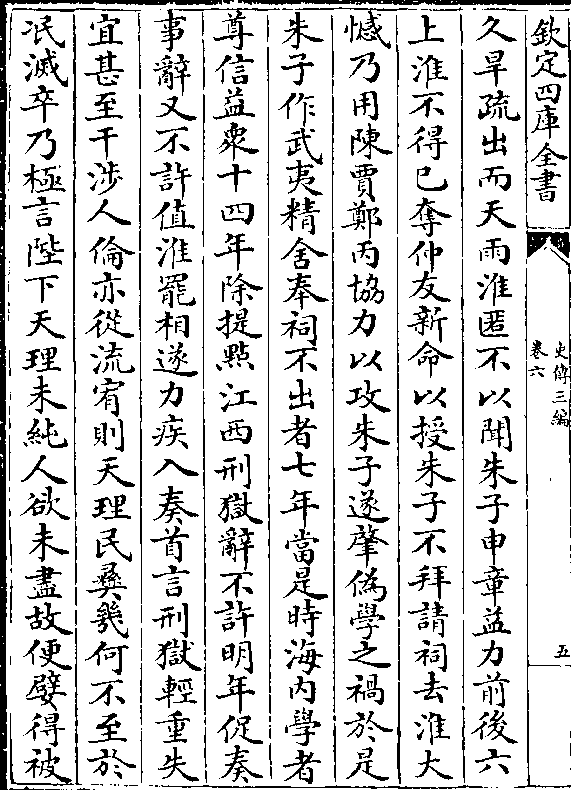 欽定四庫全書
史傳三編
卷六
五
久旱疏出而天雨淮匿不以聞朱子申章益力前後六
上淮不得已奪仲友新命以授朱子不拜請祠去淮大
憾乃用陳賈鄭丙協力以攻朱子遂肈偽學之禍於是
朱子作武夷精舍奉祠不出者七年當是時海内學者
尊信益衆十四年除提㸃江西刑獄辭不許明年促奏
事辭又不許值淮罷相遂力疾入奏首言刑獄輕重失
宜甚至干涉人倫亦從流宥則天理民彞㡬何不至於
泯滅卒乃極言陛下天理未純人欲未盡故便嬖得被